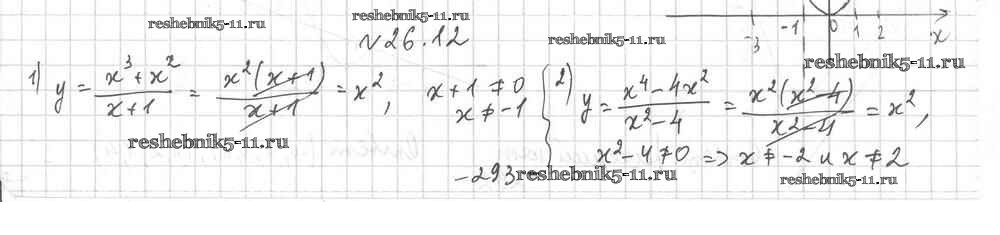 reshebnik5-11.ru
reshebnik5-11.ru
№26.12
reshebnik5-11.ru
-3 -1 0 1 2 x
reshebnik5-11.ru
1) y = (x³ + x²)/(x + 1) = x²(x + 1)/(x + 1) = x², x + 1 ≠ 0
x ≠ -1
2) y = (x⁴ - 4x²)/(x² - 4) = x²(x² - 4)/(x² - 4) = x²,
x² - 4 ≠ 0 => x ≠ -2 и x ≠ 2
reshebnik5-11.ru
-293-
reshebnik5-11.ru
reshebnik5-11.ru